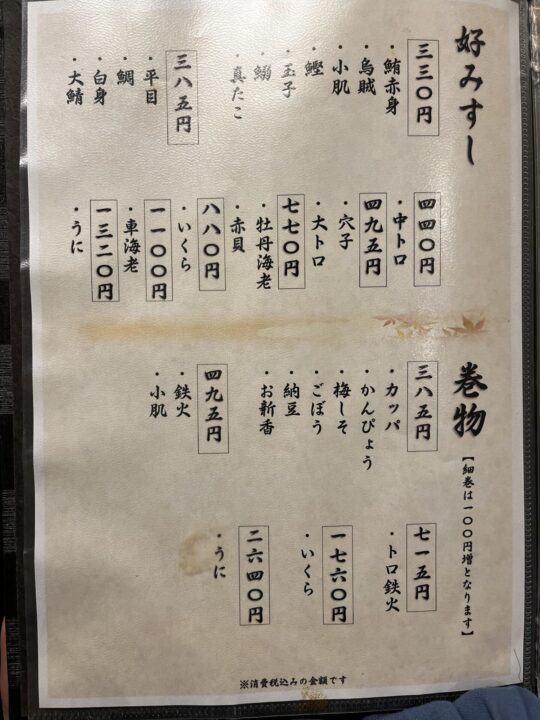 好みすし
三三〇円
・鮪赤身
・烏賊
・小肌
・鰹
・玉子
・鰯
・真たこ
三八五円
・平目
・鯛
・白身
・大鯖
四四〇円
・中トロ
四九五円
・穴子
・大トロ
七七〇円
・牡丹海老
・赤貝
八八〇円
・いくら
一一〇〇円
・車海老
一三二〇円
・うに
巻物
【細巻は一〇〇円増となります】
三八五円
・カッパ
・かんぴょう
・梅しそ
・ごぼう
・納豆
・お新香
四九五円
・鉄火
・小肌
七一五円
・トロ鉄火
一七六〇円
・いくら
二六四〇円
・うに
※消費税込みの金額です